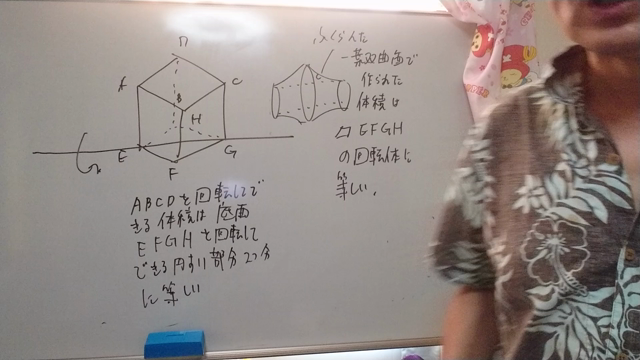 D
A
C
B
H
E
G
F
ABCDを回転してで
きる体積は底面
EFGHを回転して
できる円すい部分2つ分
に等しい
ふくらんだ
一葉双曲面で
作られた
体積は
□EFGH
の回転体に
等しい.